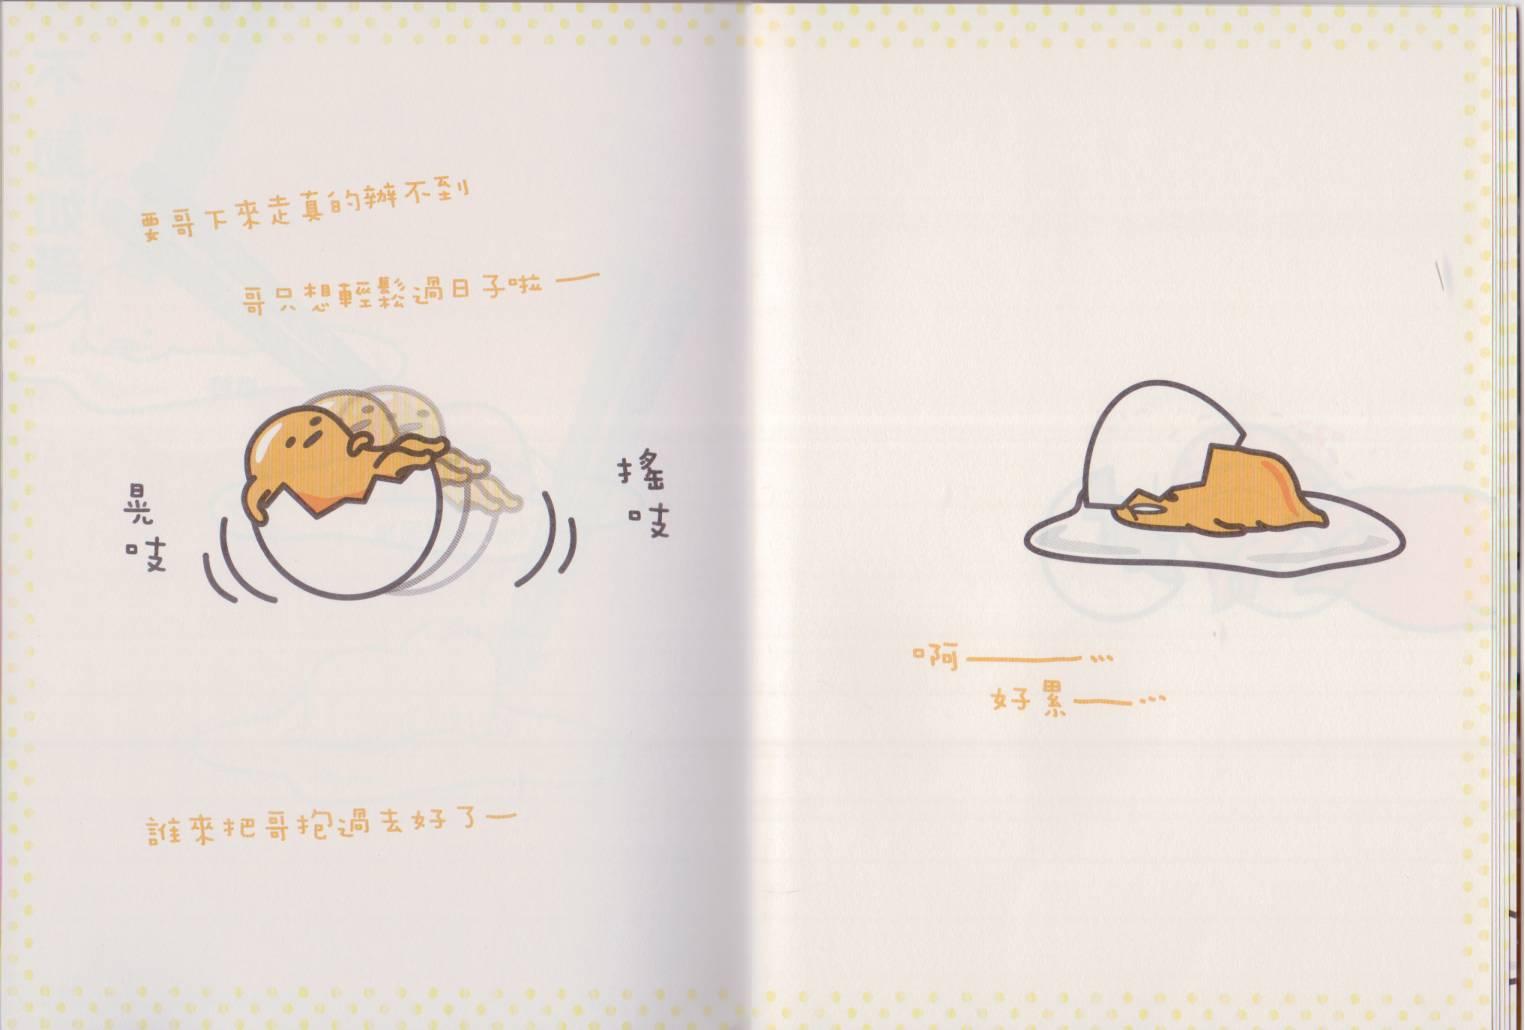 要哥下來走真的辦不到
哥只想輕鬆過日子啦——
晃吱
搖吱
誰來把哥抱過去好了—
啊————…
好累——…